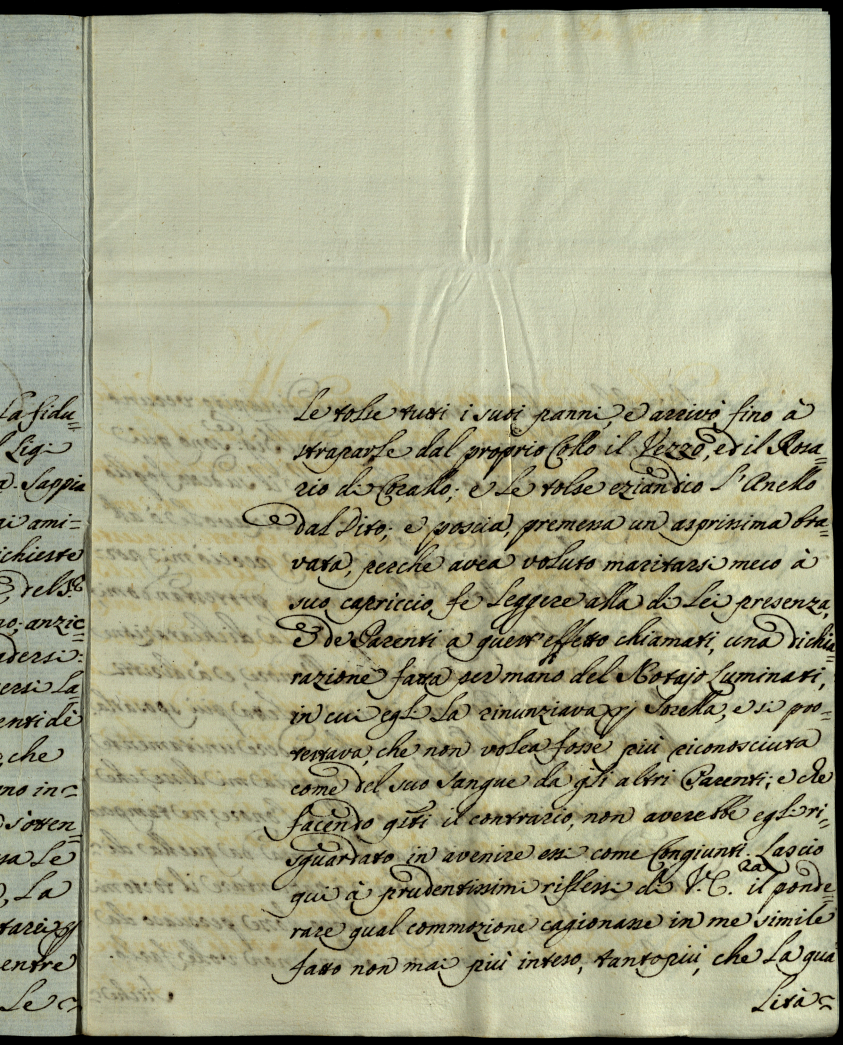 la fidu=
Lig:
Sappia
ami=
ichieste
del S.r
no; anzic=
adersi:
ersi La
enti di
, che
no in=
s'otten=
sa Le
, La
tarei p
entre
Le =
Le tolse tutti i suoi panni, e arrivò fino à
straparle dal proprio Collo il Vezzo, ed il Rosa=
rio di Corallo; e Le tolse eziandio L'Anello
dal Dito; e poscia, premessa un asprissima bra=
vata, perche avea voluto maritarsi meco à
suo capriccio, fè Leggere alla di Lei presenza,
e de Parenti a quest'effetto chiamati, una dichia=
razione fatta per mano del Notajo Luminati,
in cui egli La rinunziava p Sorella, e si pro=
testava, che non volea fosse più riconosciuta
come del suo Sangue da gli altri Parenti; e che
facendo q.sti il contrario, non averebbe egli ri=
sguardato in avenire essi come Congiunti. Lascio
qui à prudentissimi riflessi di V.C.za il ponde=
rare qual commozione cagionasse in me simile
fatto non mai più inteso, tantopiù, che La qua
Lità =